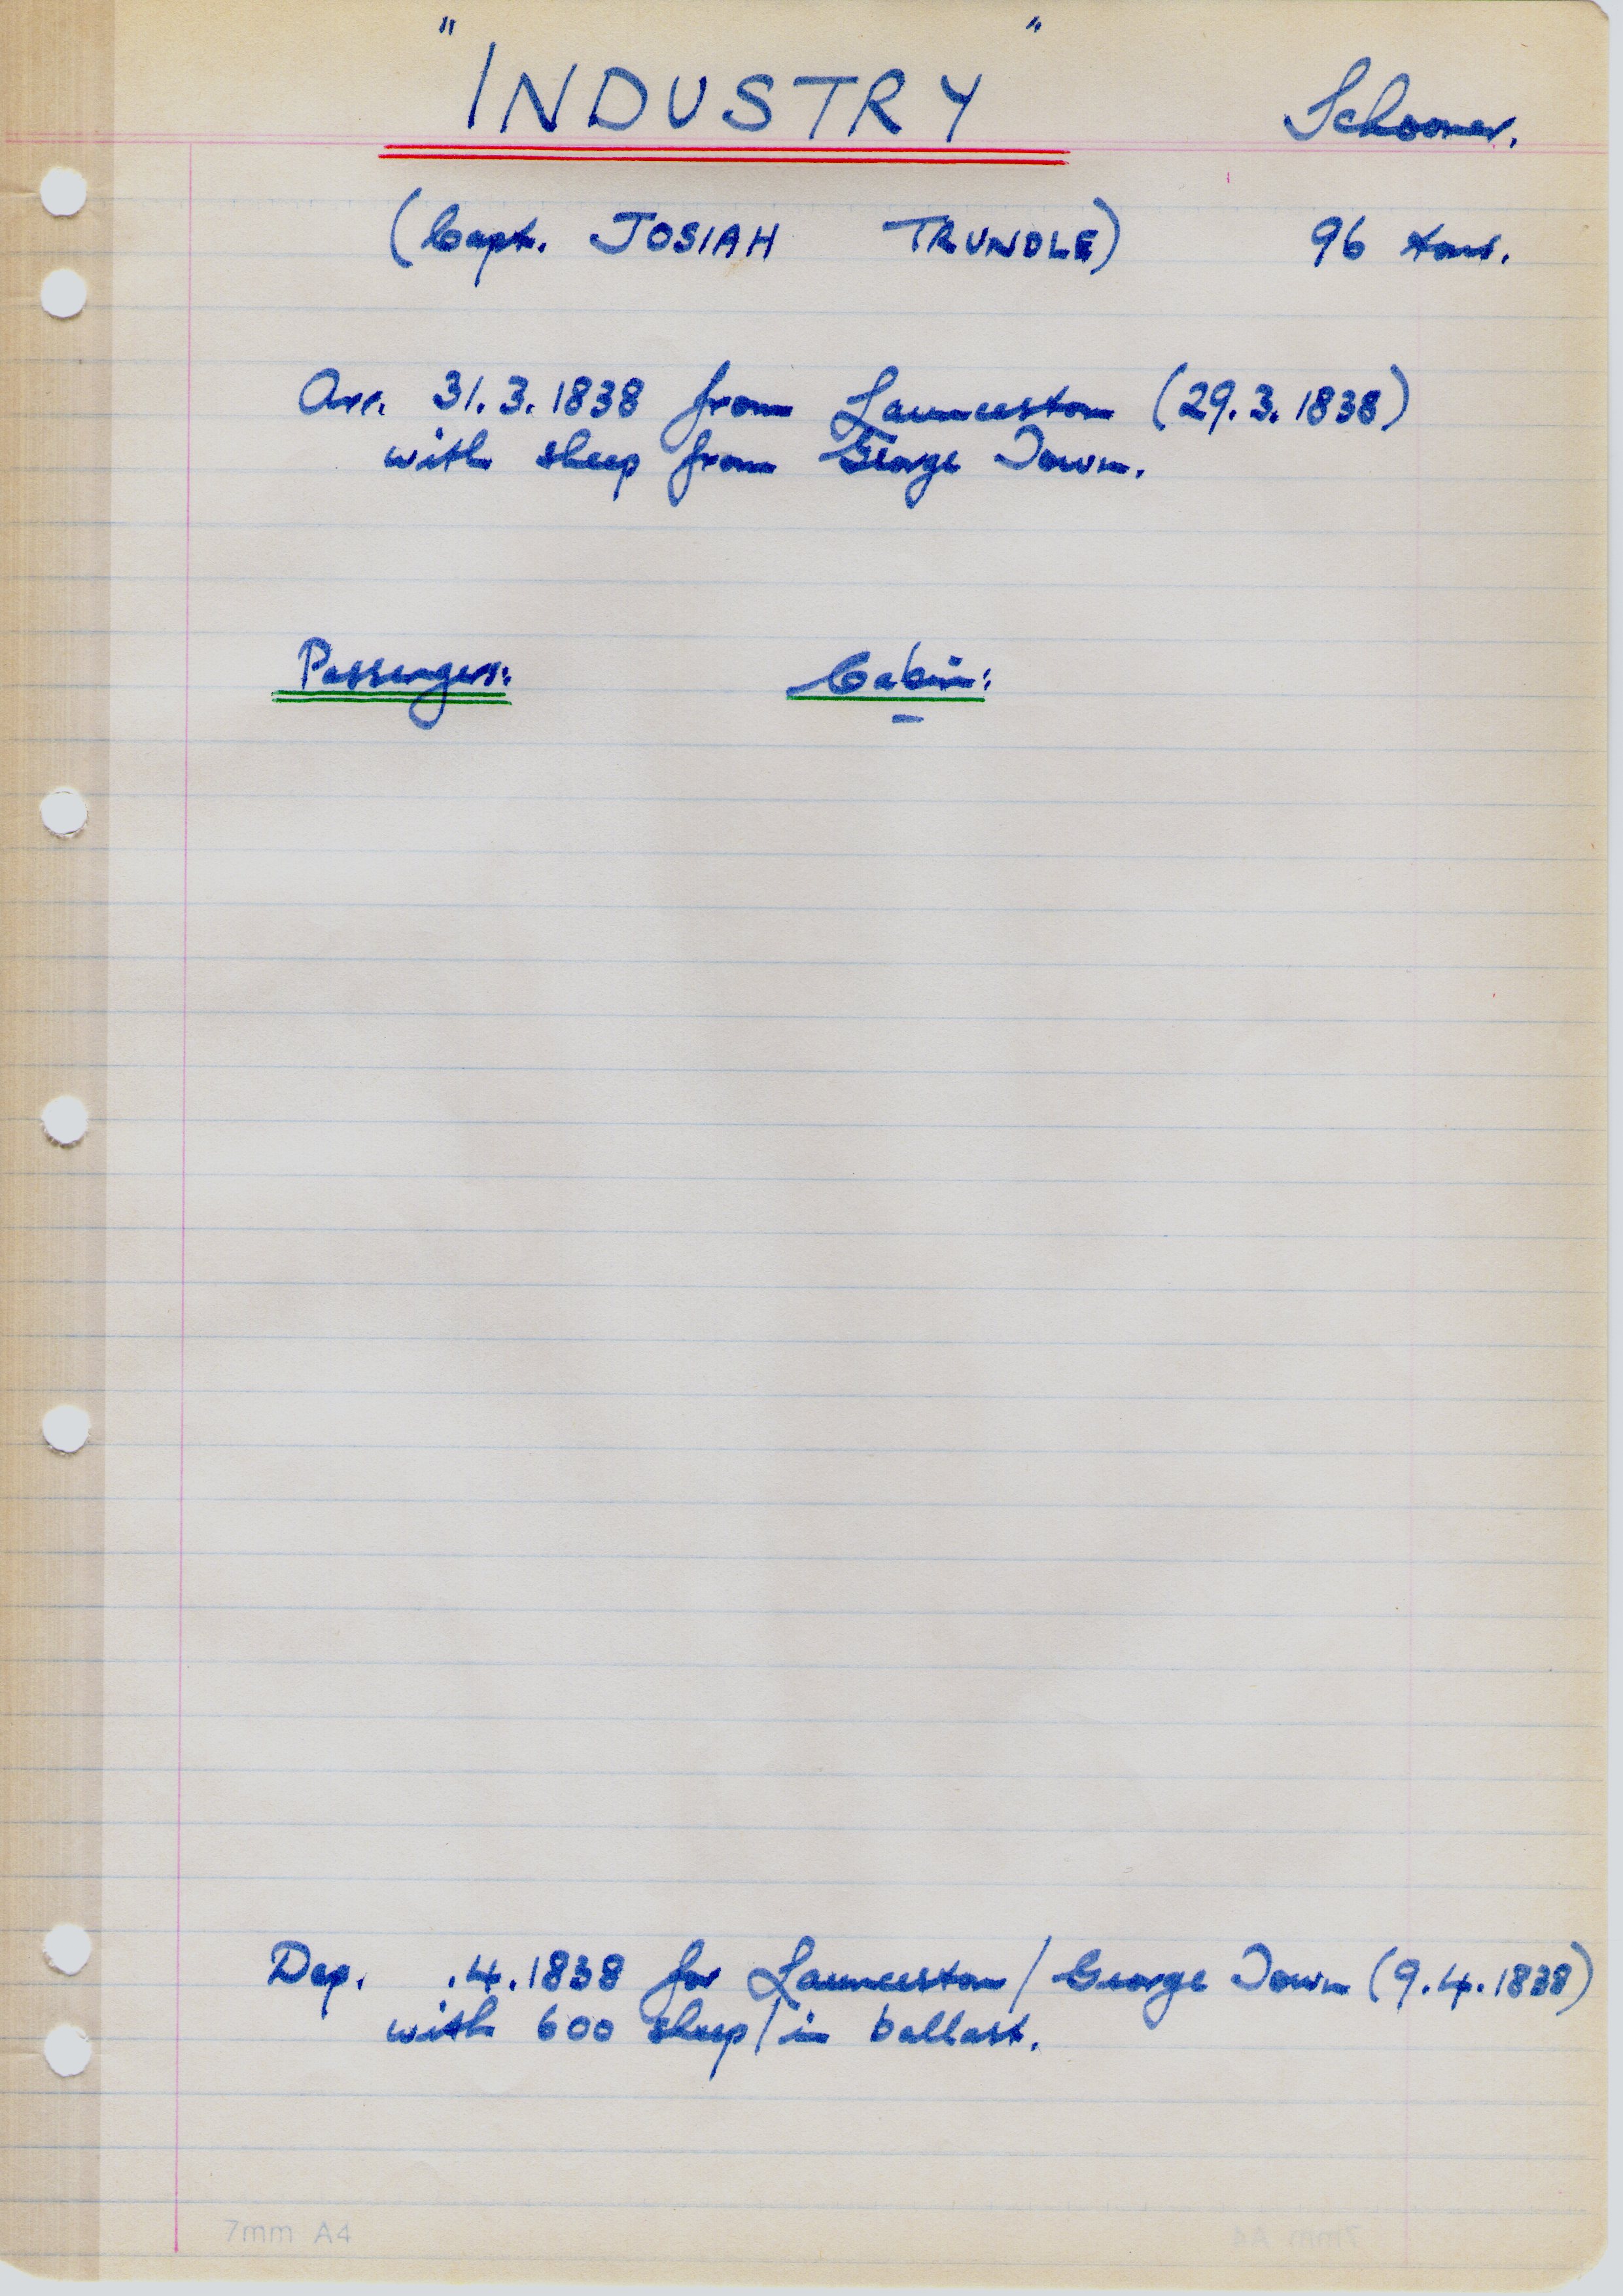 "INDUSTRY" Schooner.
(Capt. JOSIAH TRUNDLE) 96 tons.
Arr. 31.3.1838 from Launceston (29.3.1838)
with sheep from George Town.
Passengers: Cabin:
–
Dep. .4.1838 for Launceston / George Town (9.4.1838)
with 600 sheep / in ballast.
7mm A4